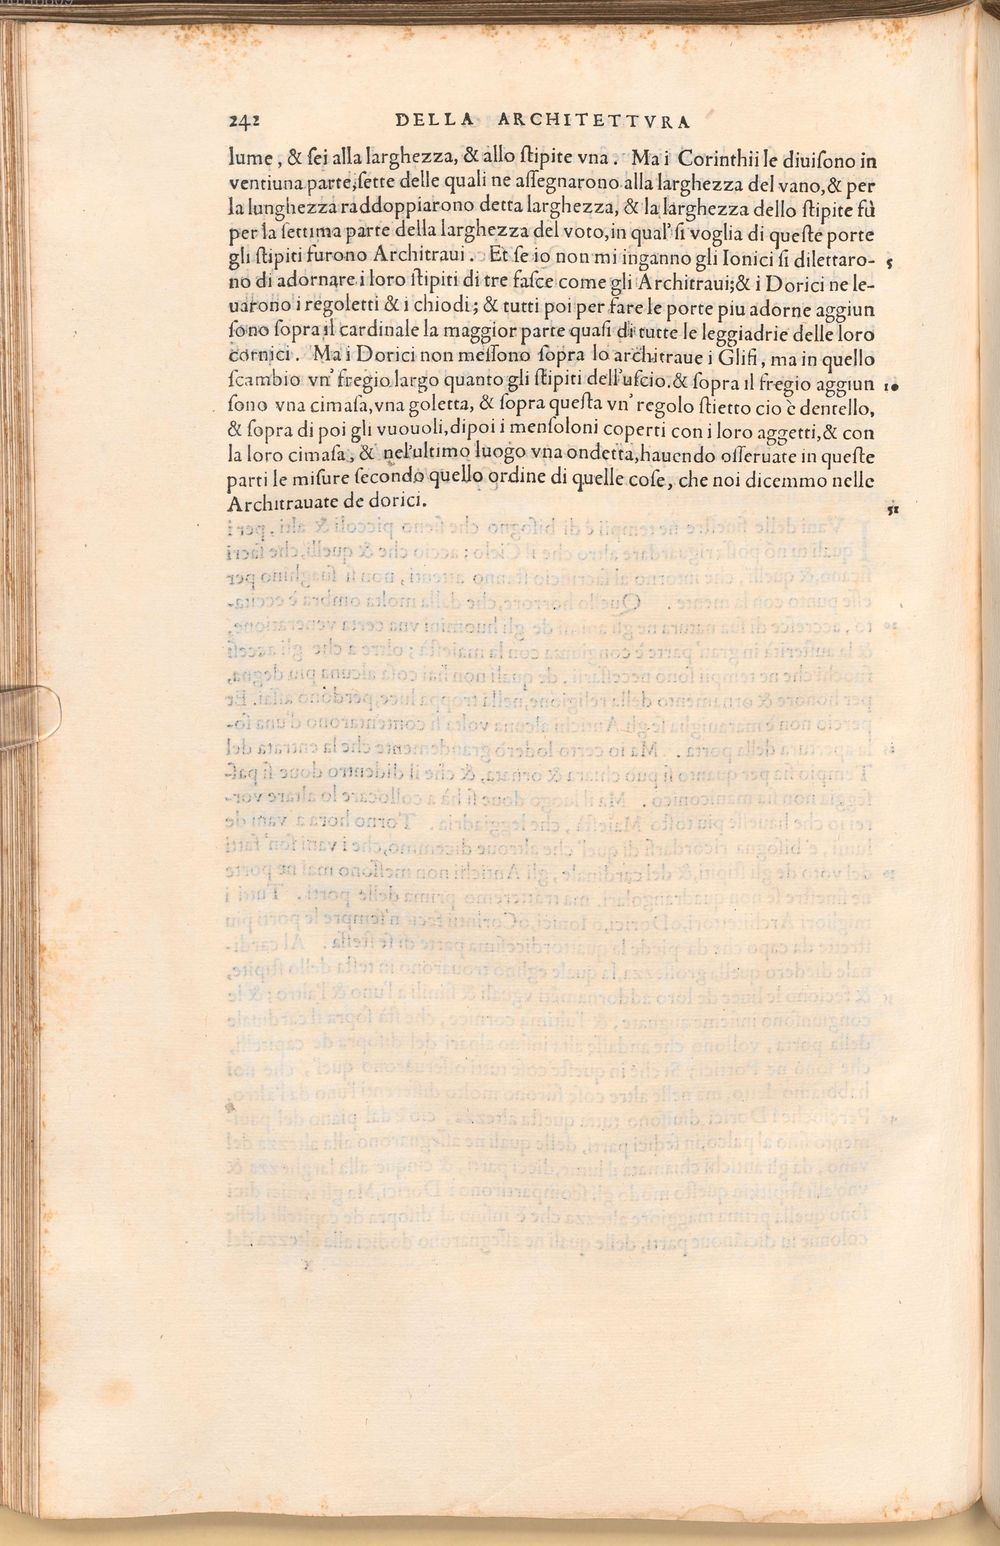 242 DELLA ARCHITETTVRA
lume, & ſei alla larghezza, & allo ſtipite vna. Ma i Corinthii le diuiſono in
ventiuna parte; ſette delle quali ne aſſegnarono alla larghezza del vano, & per
la lunghezza raddoppiarono detta larghezza, & la larghezza dello ſtipite fù
per la ſettima parte della larghezza del voto, in qual' ſi voglia di queſte porte
gli ſtipiti furono Architraui. Et ſe io non mi inganno gli Ionici ſi dilettaro- 5
no di adornare i loro ſtipiti di tre faſce come gli Architraui; & i Dorici ne le-
uarono i regoletti & i chiodi; & tutti poi per fare le porte piu adorne aggiun
ſono ſopra il cardinale la maggior parte quaſi di tutte le leggiadrie delle loro
cornici. Ma i Dorici non meſſono ſopra lo architraue i Gliſi, ma in quello
ſcambio vn' fregio largo quanto gli ſtipiti dell'uſcio. & ſopra il fregio aggiun 10
ſono vna cimaſa, vna goletta, & ſopra queſta vn' regolo ſtietto cio è dentello,
& ſopra di poi gli vuouoli, dipoi i menſoloni coperti con i loro aggetti, & con
la loro cimaſa, & nel'ultimo luogo vna ondetta, hauendo oſſeruate in queſte
parti le miſure ſecondo quello ordine di quelle coſe, che noi dicemmo nelle
Architrauate de dorici.